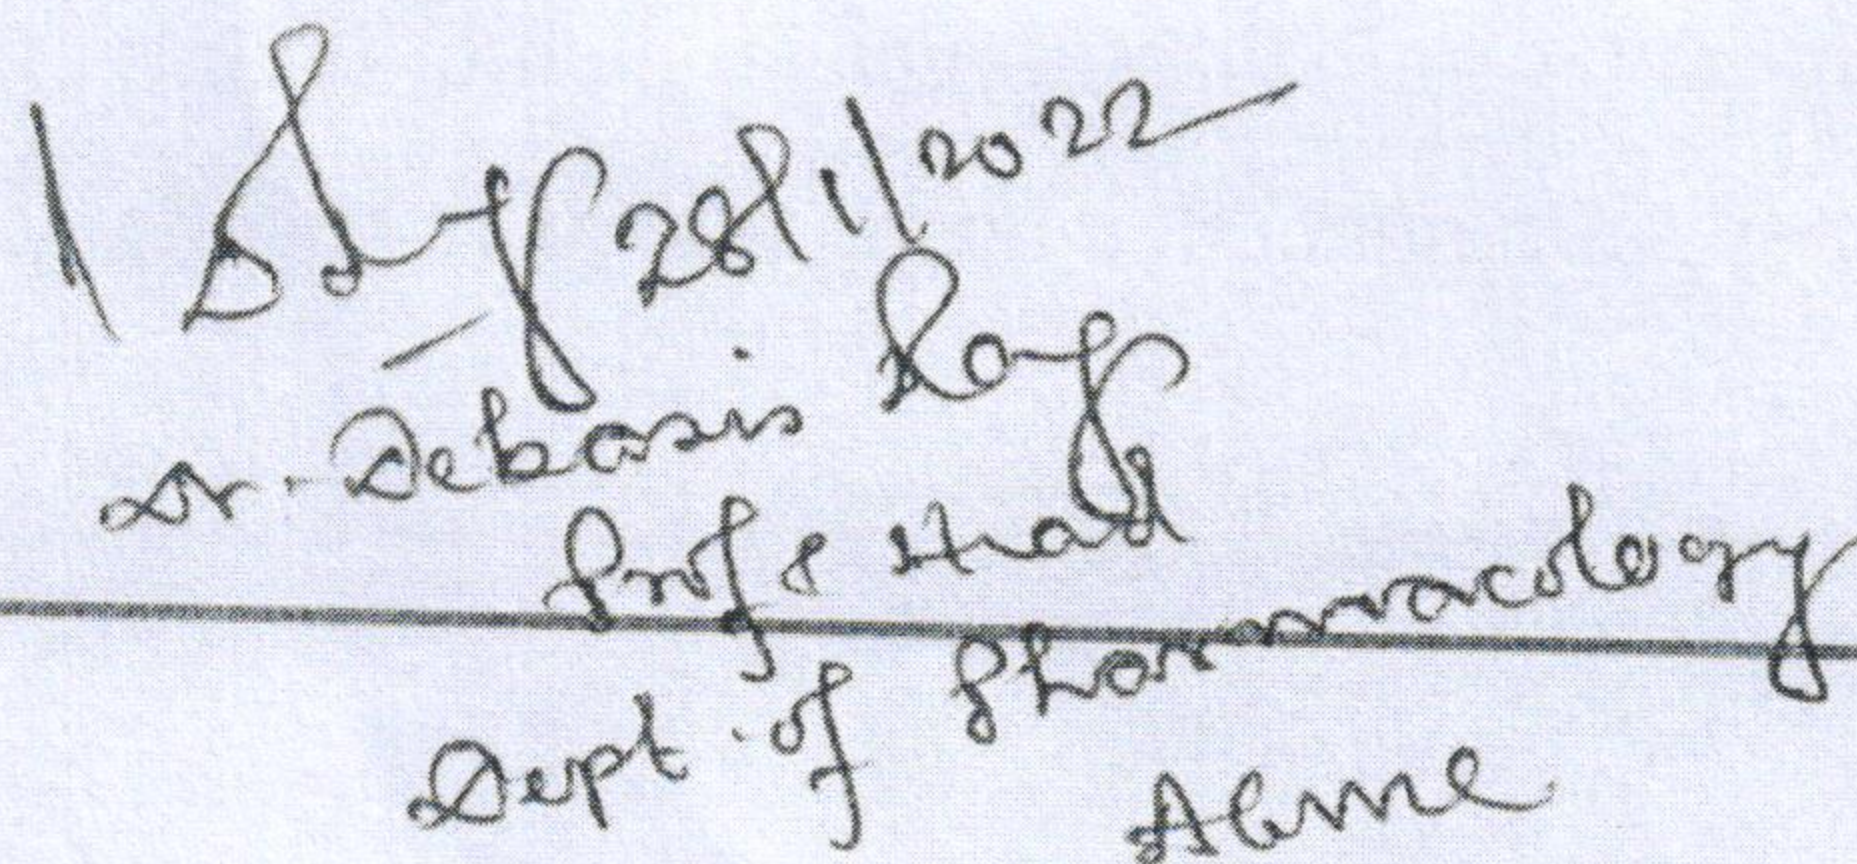 28/1/2022
Dr. Debasis Ray
Prof & Head
Dept. of Pharmacology
AGMC